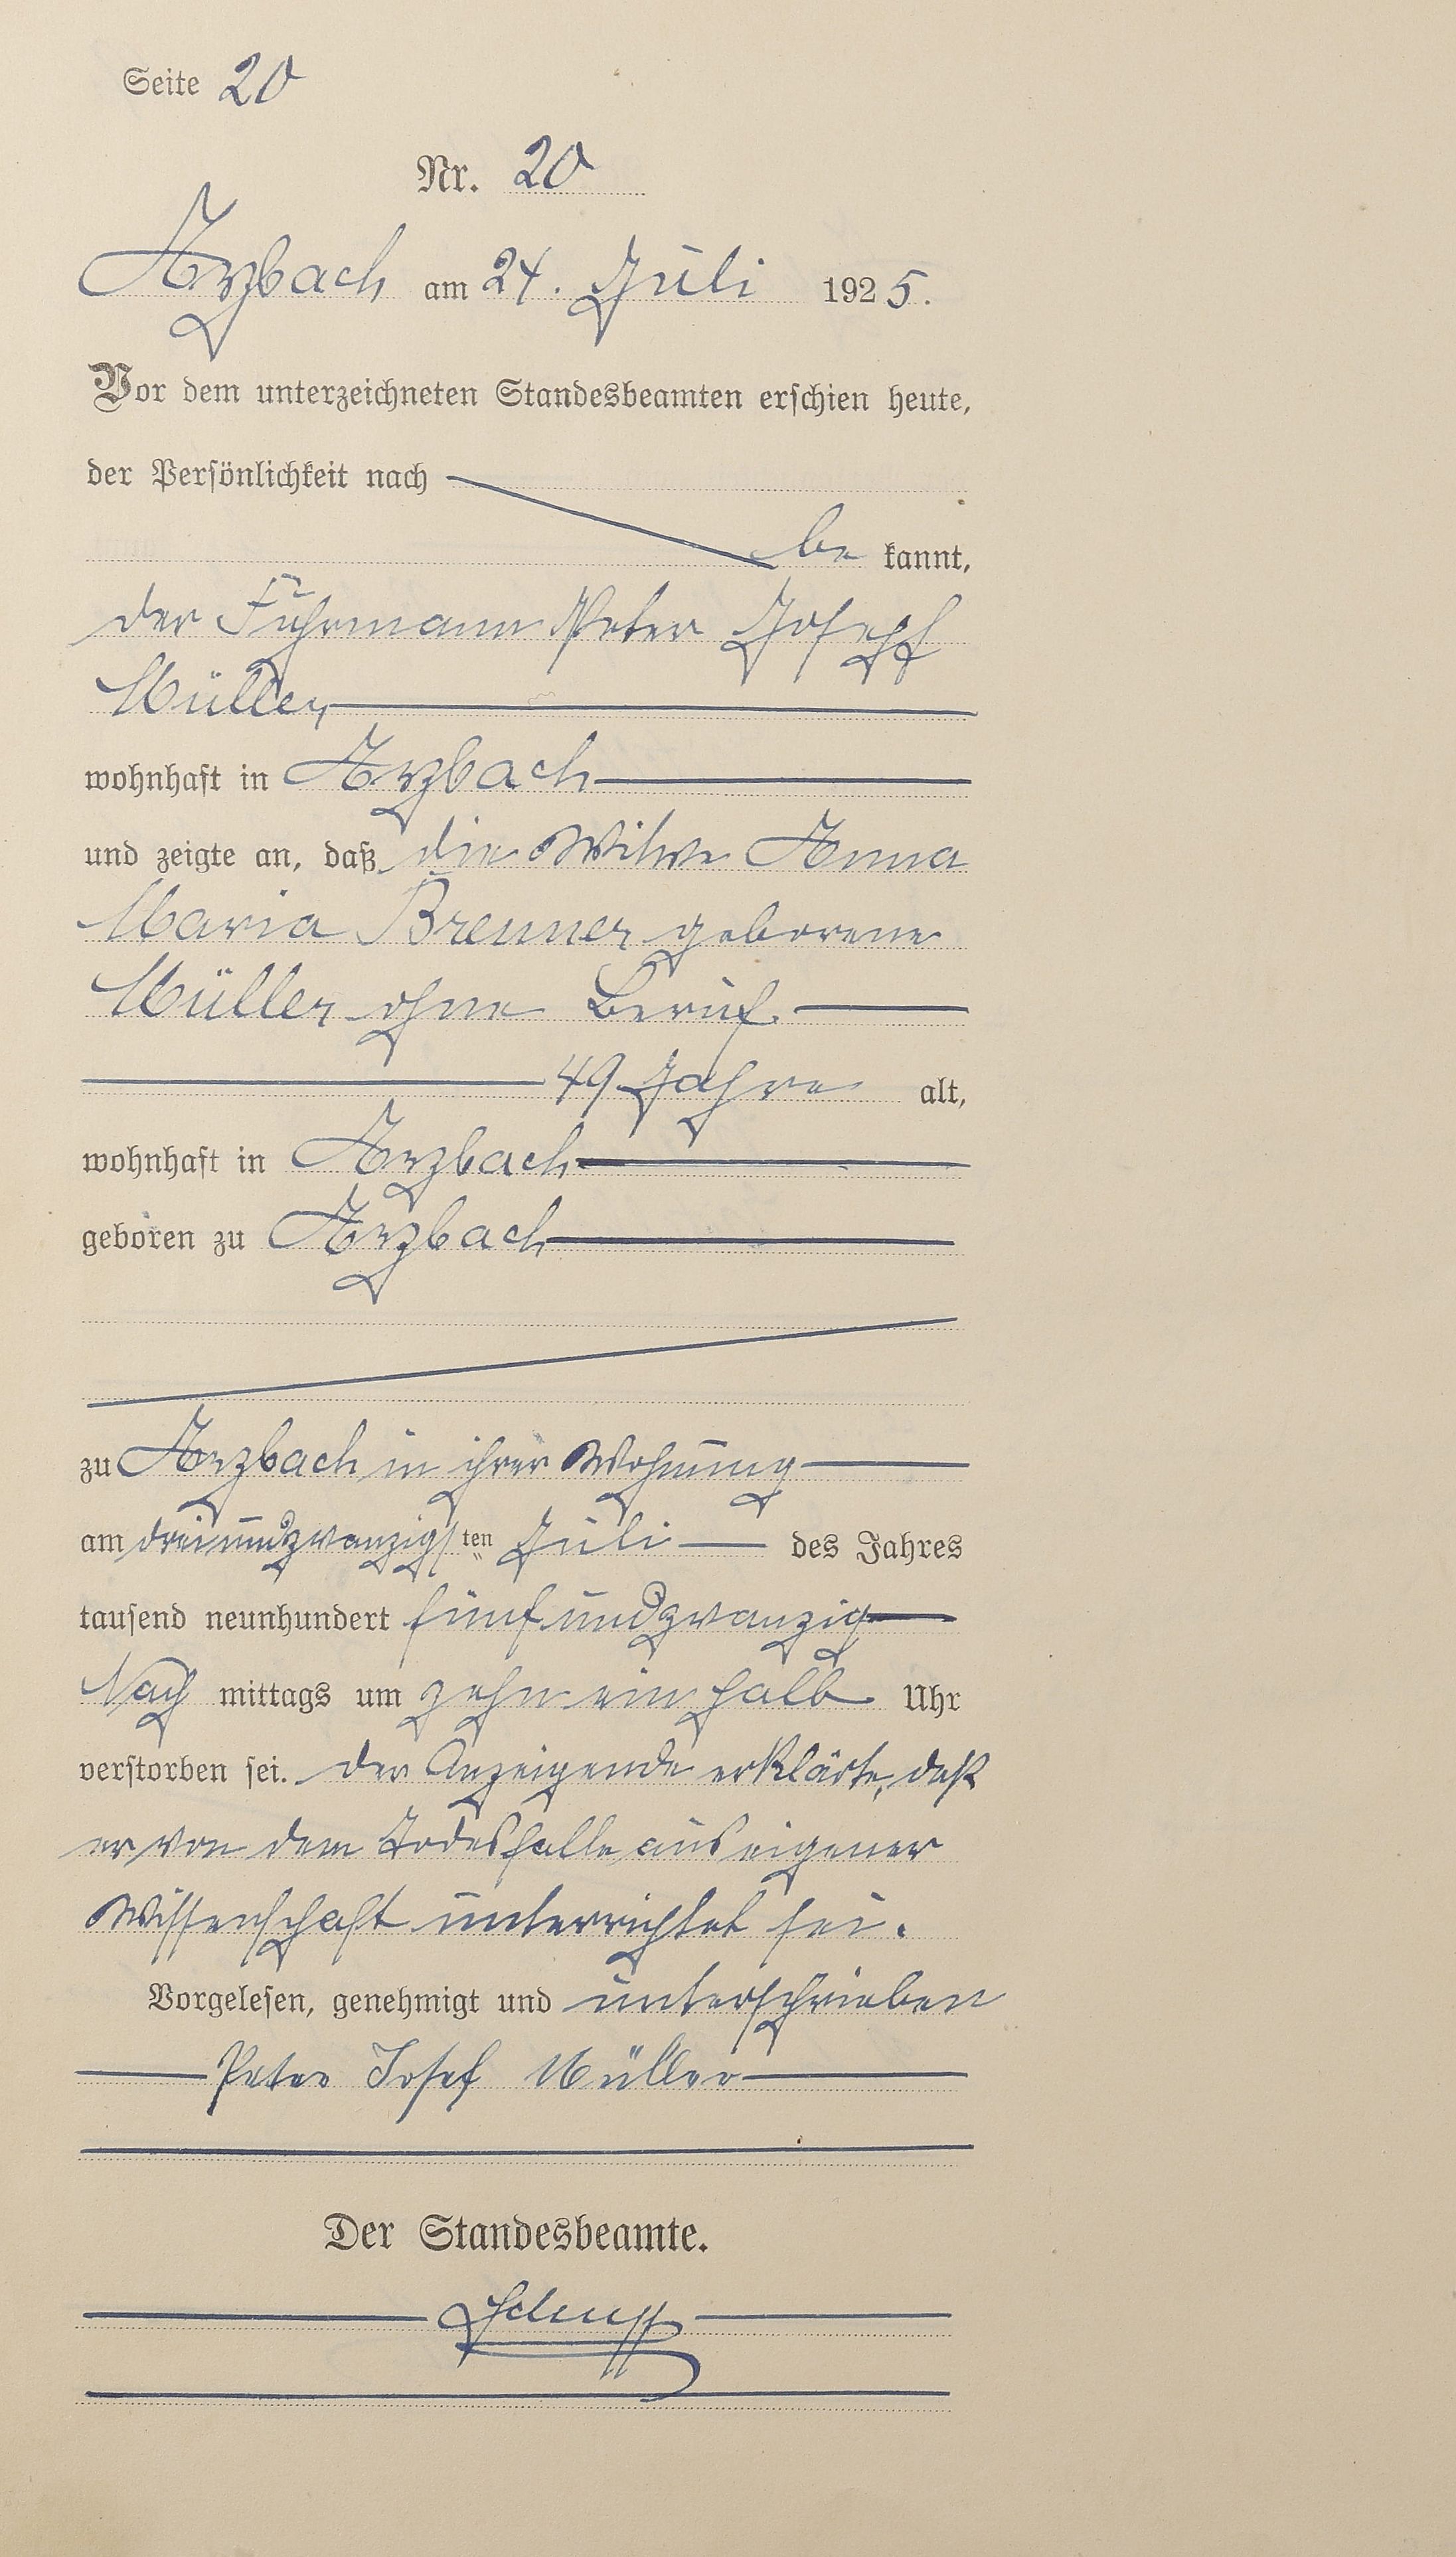 Seite 20
Nr. 20
Arzbach am 24. Juli 1925.
Vor dem unterzeichneten Standesbeamten erschien heute,
der Persönlichkeit nach
be kannt,
der Fuhrmann Peter Joseph
Müller,
wohnhaft in Arzbach
und zeigte an, daß die Witwe Anna
Maria Brenner geborene
Müller ohne Beruf
49 Jahre alt,
wohnhaft in Arzbach
geboren zu Arzbach
zu Arzbach in ihrer Wohnung
am dreiundzwanzigsten Juli des Jahres
tausend neunhundert fünfundzwanzig
Nach mittags um zehn ein halb Uhr
verstorben sei. Der Anzeigende erklärte, daß
er von dem Todesfalle aus eigener
Wissenschaft unterrichtet sei.
Vorgelesen, genehmigt und unterschrieben
Peter Josef Müller
Der Standesbeamte.